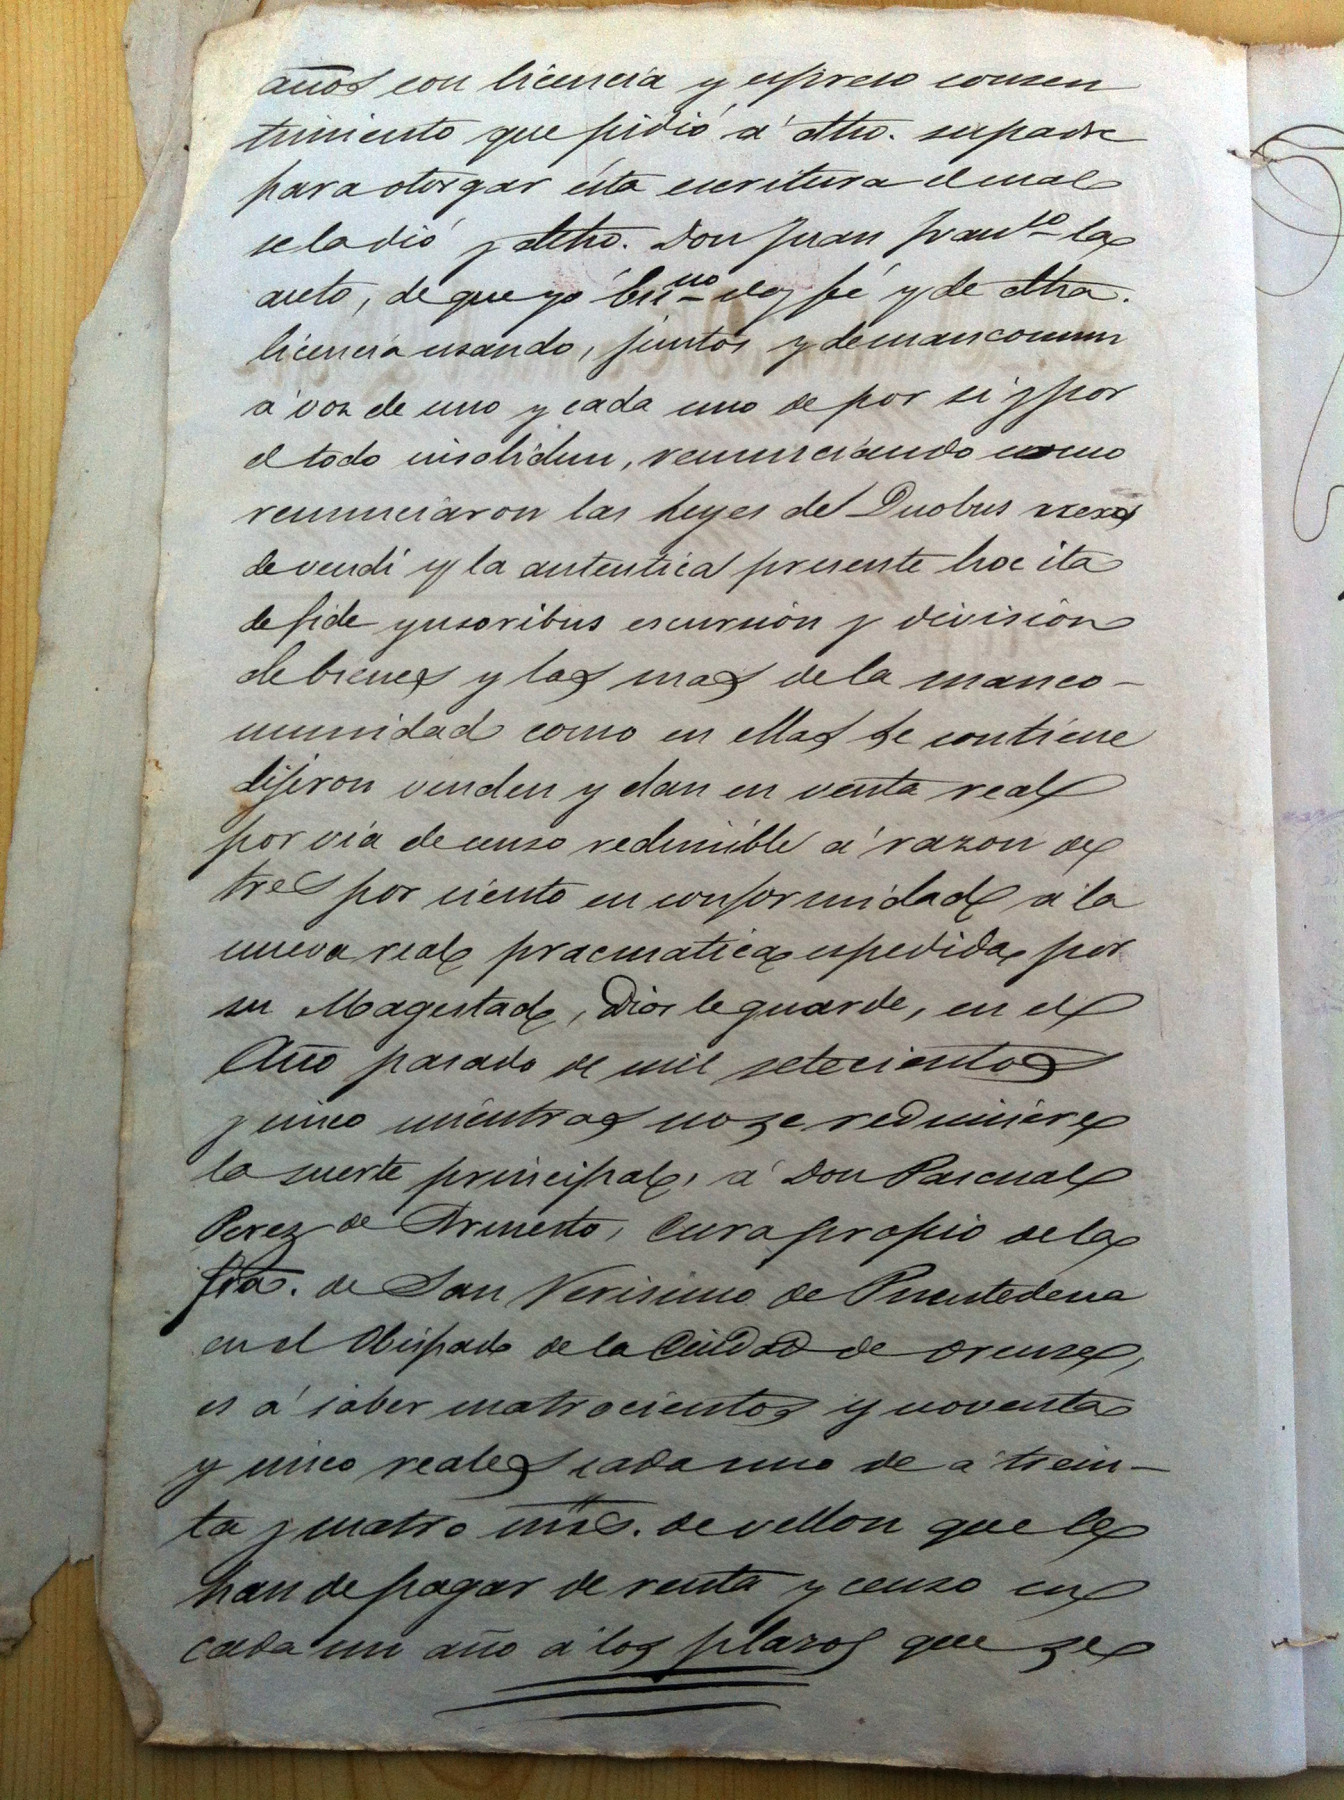 años con licencia y espreso consen
timiento que pidió á dho. su padre
para otorgar ésta escritura el cual
se la dió y dho. Don Juan Franco la
aceto, de que yo Esno doy fé y de dha.
licencia usando, juntos y de mancomun
á voz de uno y cada uno de por si y por
el todo insolidun, renunciando como
renunciaron las leyes de Duobus rrexs
devendi y la autentica presente hoc ita
de fide yusoribus escursion y division
de bienes y las mas de la manco-
munidad como en ellas se contiene
dijeron venden y dan en venta real
por via de censo redimible á razon de
tres por ciento en conformidad á la
nueva real pracmatica espedida por
su Magestad, Dios le guarde, en el
Año pasado de mil setecientos
y cinco mientras no se redimiere
la suerte principal, á Don Pascual
Perez de Armesto, Cura propio de la
fra. de San Verisimo de Puentedeva
en el Obispado de la Ciudad de Orense,
es á saber cuatrocientos y noventa
y cinco reales cada uno de á trein-
ta y cuatro mrs. de vellon que le
han de pagar de renta y censo en
cada un año á los plazos que se